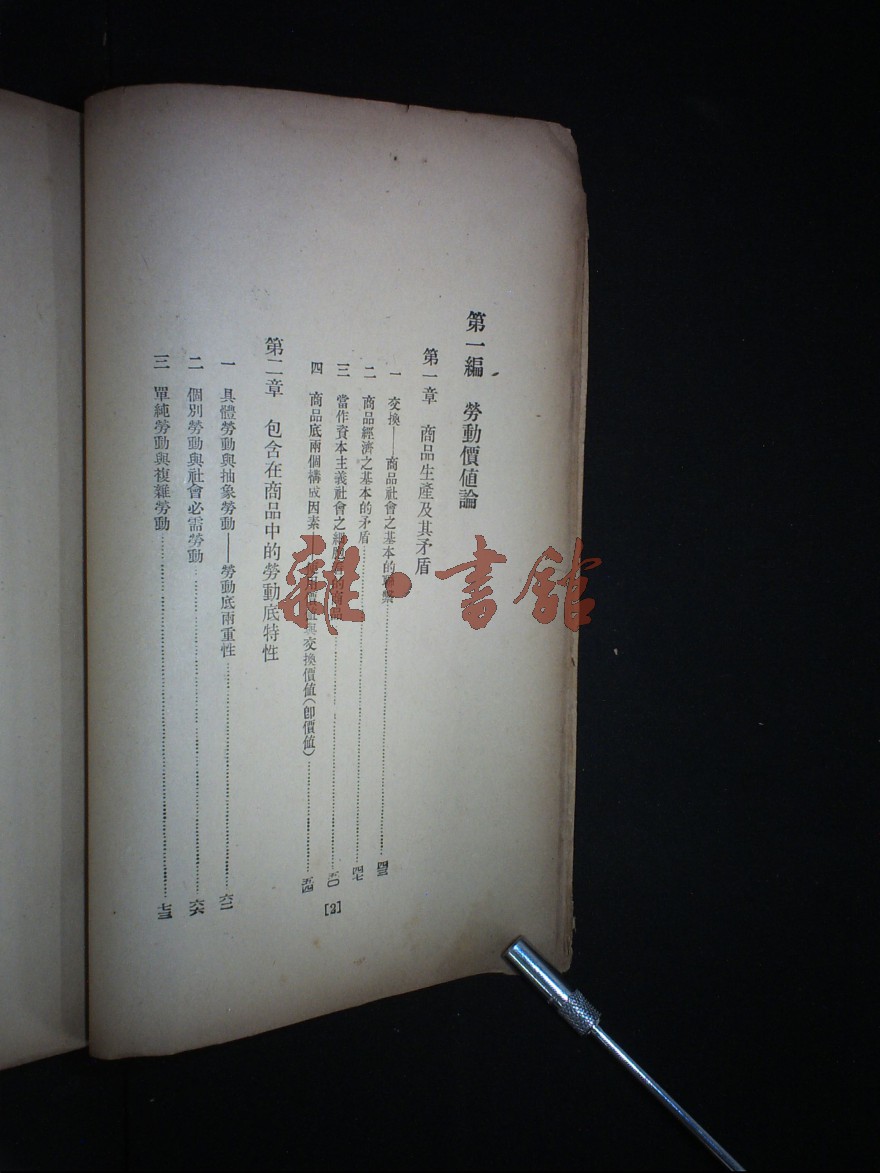 第一編 勞動價值論
第一章 商品生產及其矛盾
一 交換——商品社會之基本的聯繫 四三
二 商品經濟之基本的矛盾 四七
三 當作資本主義社會之細胞看的商品 五〇
四 商品底兩個構成因素 使用價值與交換價值(卽價值) 五四
第二章 包含在商品中的勞動底特性
一 具體勞動與抽象勞動——勞動底兩重性 六二
二 個別勞動與社會必需勞動 六六
三 單純勞動與複雜勞動 七三
[3]
雜·書館